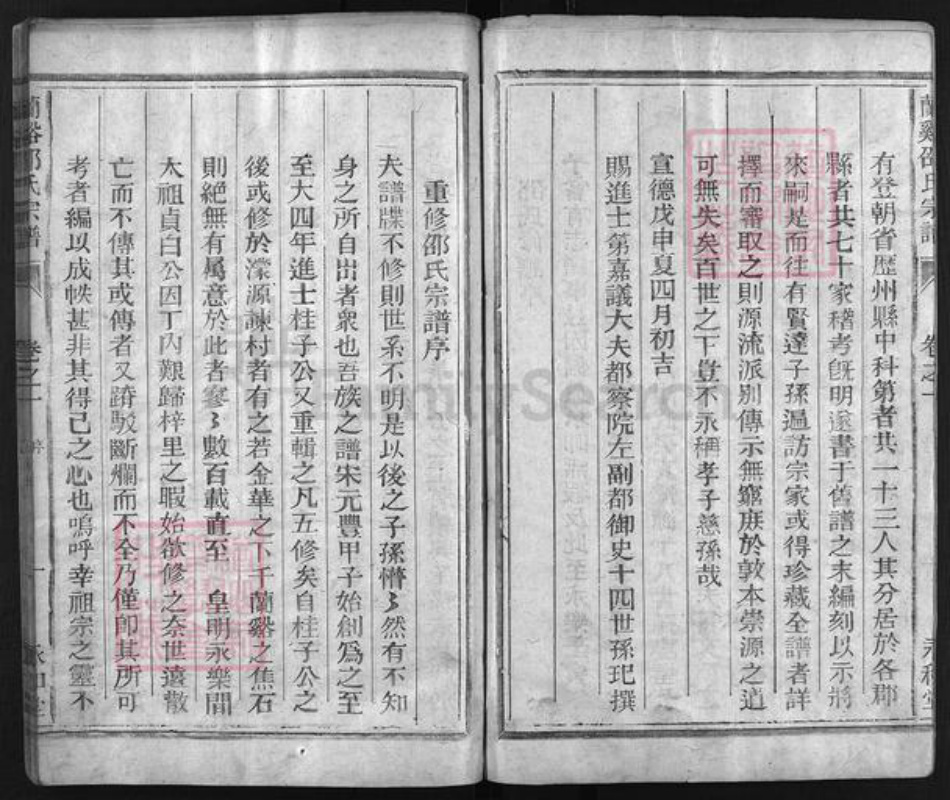 蘭谿邵氏宗譜 卷之一 永和堂
有登朝省歷州縣中科第者共一十三人其分居於各郡
縣者共七十家稽考既明遂書于舊譜之末編刻以示將
來嗣是而往有賢達子孫遍訪宗家或得珍藏全譜者詳
擇而審取之則源流派别傳示無窮庶於敦本崇源之道
可無失矣百世之下豈不永稱孝子慈孫哉
宣德戊申夏四月初吉
賜進士第嘉議大夫都察院左副都御史十四世孫玘撰
重修邵氏宗譜序
夫譜牒不修則世系不明是以後之子孫懵〻然有不知
身之所自出者衆也吾族之譜宋元豐甲子始創爲之至
至大四年進士桂子公又重輯之凡五修矣自桂子公之
後或修於濛源諫村者有之若金華之下千蘭谿之焦石
則絕無有屬意於此者寥〻數百載直至 皇明永樂間
太祖貞白公因丁内艱歸梓里之暇始欲修之奈世遠散
亡而不傳其或傳者又踳駁斷爛而不全乃僅卽其所可
考者編以成帙甚非其得已之心也嗚呼幸祖宗之靈不
蘭谿邵氏宗譜 卷之一 永和堂
FamilySearch